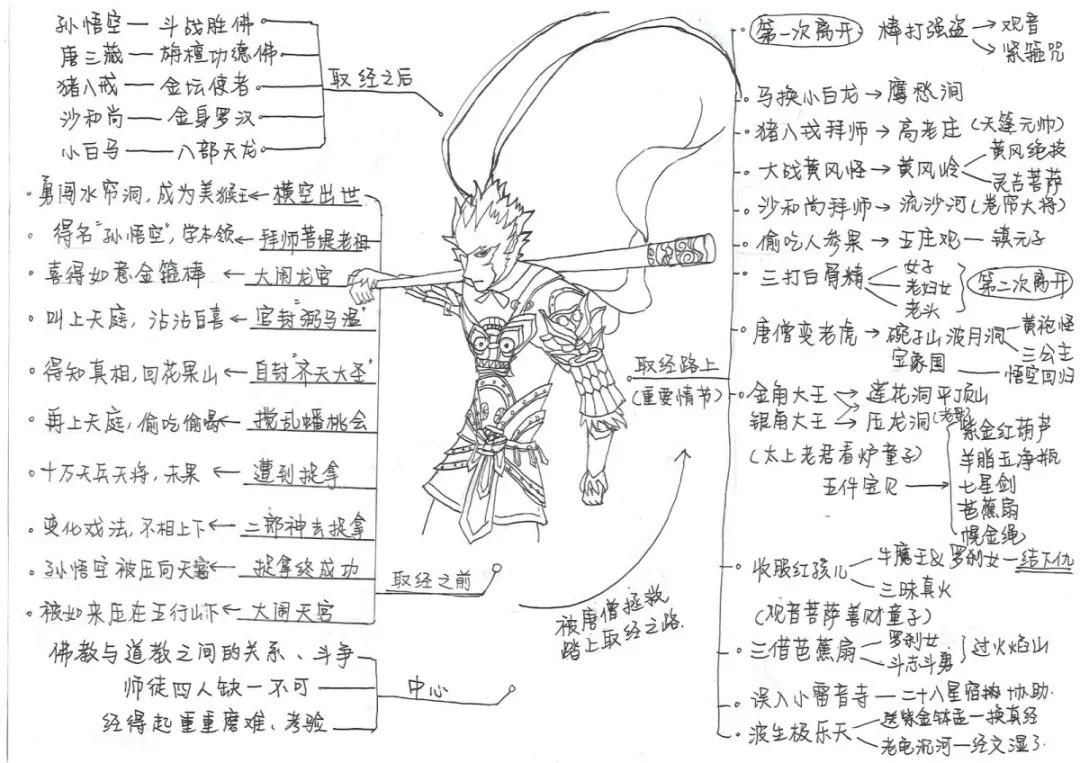 孙悟空—斗战胜佛
唐三藏—旃檀功德佛
猪八戒—金坛使者
沙和尚—金身罗汉
小白马—八部天龙
取经之后
勇闯水帘洞,成为美猴王←横空出世
得名“孙悟空”,学本领←拜师菩提老祖
喜得如意金箍棒←大闹龙宫
叫上天庭,沾沾自喜←官封“弼马温”
得知真相,回花果山←自封“齐天大圣”
再上天庭,偷吃偷喝←搅乱蟠桃会
十万天兵天将,未果←遭到捉拿
变化戏法,不相上下←二郎神去捉拿
孙悟空被压向天宫←捉拿终成功
被如来压在五行山下←大闹天宫
取经之前
佛教与道教之间的关系、斗争
师徒四人缺一不可
经得起重重磨难、考验
中心
被唐僧拯救
踏上取经之路.
取经路上
(重要情节)
第一次离开:棒打强盗→观音
→紧箍咒
马换小白龙→鹰愁涧
猪八戒拜师→高老庄(天篷元帅)
大战黄风怪→黄风岭
黄风绝技
灵吉菩萨
沙和尚拜师→流沙河(卷帘大将)
偷吃人参果→五庄观—镇元子
三打白骨精
女子
老妇女
老头
第二次离开
唐僧变老虎→碗子山波月洞
黄袍怪
三公主
宝象国—悟空回归
金角大王→莲花洞平顶山
银角大王→压龙洞
(太上老君看炉童子)
五件宝贝→
紫金红葫芦
羊脂玉净瓶
七星剑
芭蕉扇
幌金绳
收服红孩儿
牛魔王&罗刹女—结下仇
三昧真火
(观音菩萨善财童子)
三借芭蕉扇
罗刹女
斗志斗勇
过火焰山
误入小雷音寺—二十八星宿协助.
波生极乐天
送紫金钵盂—换真经
老电沉河—经文湿了.